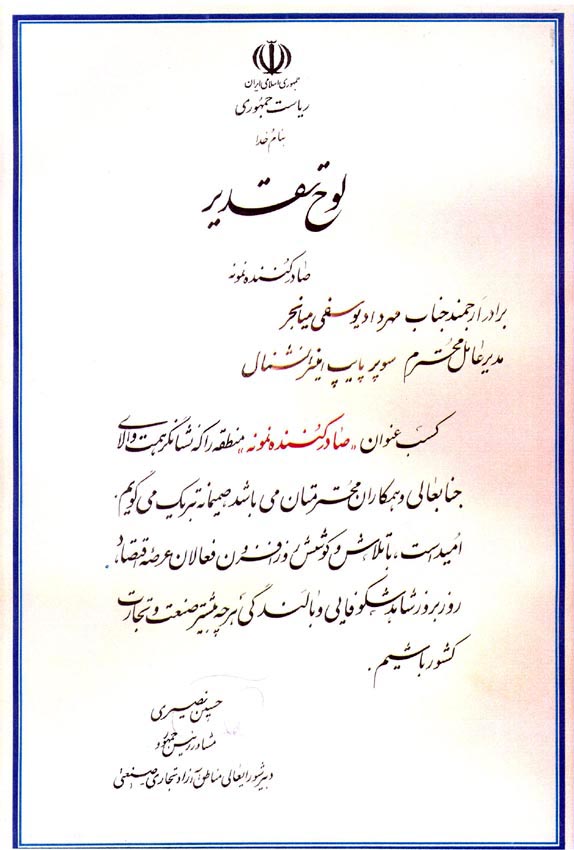 جمهوری اسلامی ایران
ریاست جمهوری
بنام خدا
لوح تقدیر
صادرکننده نمونه
برادر ارجمند جناب مهرداد یوسفی میانجر
مدیرعامل محترم سوپر پایپ اینترنشنال
کسب عنوان «صادرکننده نمونه» منطقه را که نشانگر همت والای
جنابعالی و همکاران محترمتان می باشد صمیمانه تبریک می گویم.
امید است، با تلاش و کوشش روزافزون فعالان عرصه اقتصاد،
روز بروز شاهد شکوفایی و بالندگی هرچه بیشتر صنعت و تجارت
کشور باشیم.
حسین نصیری
مشاور رئیس جمهور و
دبیر شورایعالی مناطق آزاد تجاری - صنعتی